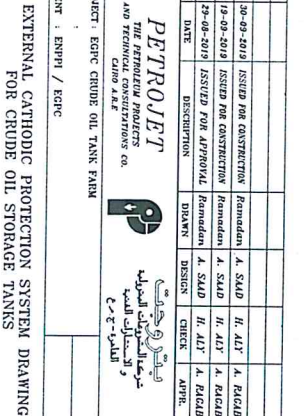 30-09-2019 ISSUED FOR CONSTRUCTION Ramadan A. SAAD H. ALY A. RAGAB
19-09-2019 ISSUED FOR CONSTRUCTION Ramadan A. SAAD H. ALY A. RAGAB
29-08-2019 ISSUED FOR APPROVAL Ramadan A. SAAD H. ALY A. RAGAB
DATE DESCRIPTION DRAWN DESIGN CHECK APPR.
PETROJET
THE PETROLEUM PROJECTS
AND TECHNICAL CONSULTATIONS CO.
CAIRO A.R.E
بتروجت
شركة المشروعات البترولية
و الاستشارات الفنية
القاهرة - ج.م.ع
JECT : EGPC CRUDE OIL TANK FARM
ENT : ENPPI / EGPC
EXTERNAL CATHODIC PROTECTION SYSTEM DRAWING
FOR CRUDE OIL STORAGE TANKS